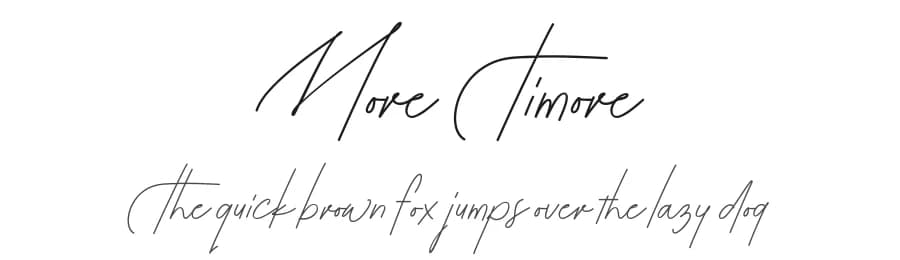 More Timore
The quick brown fox jumps over the lazy dog